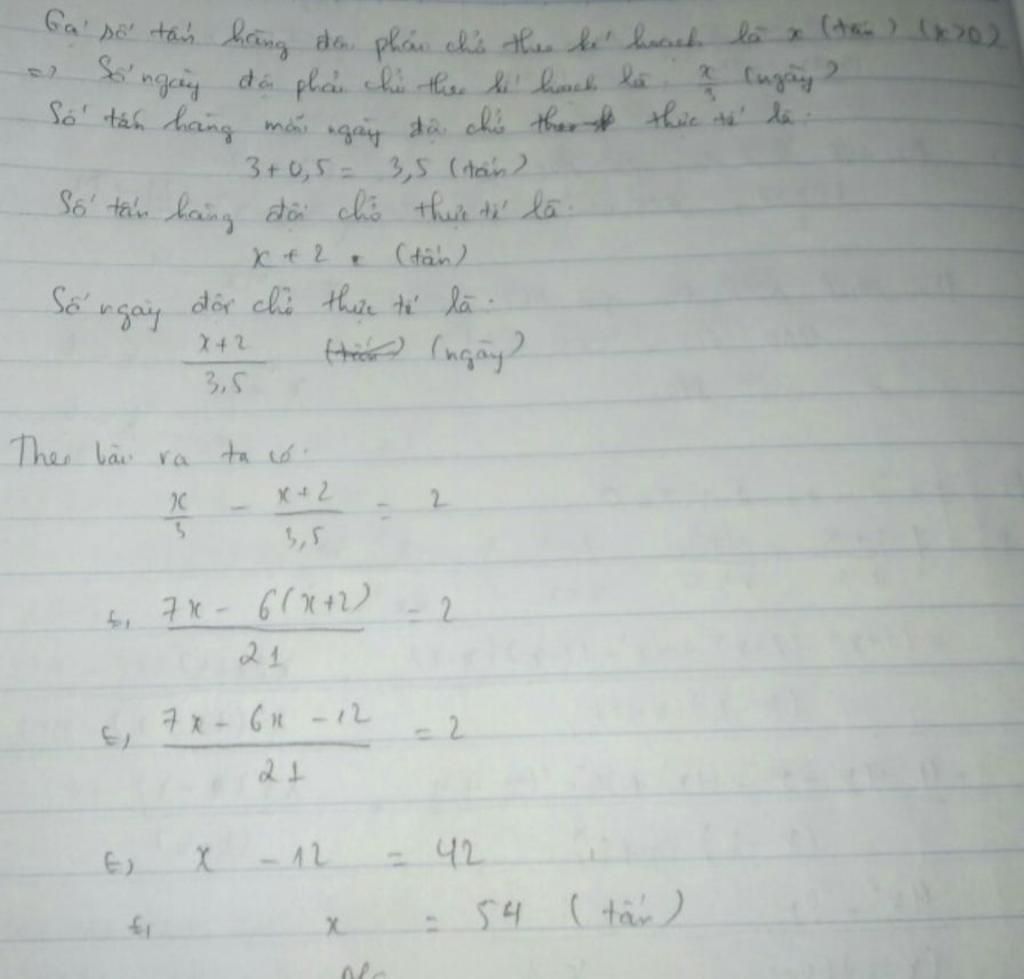 Gọi số tấn hàng đội phải chở theo kế hoạch là x (tấn) (x>0)
=> Số ngày đội phải chở theo kế hoạch là x/3 (ngày)
Số tấn hàng mỗi ngày đội chở thực tế là:
3 + 0,5 = 3,5 (tấn)
Số tấn hàng đội chở thực tế là:
x + 2 (tấn)
Số ngày đội chở thực tế là:
(x+2)/3,5 (ngày)
Theo bài ra ta có:
x/3 - (x+2)/3,5 = 2
<=> (7x - 6(x+2))/21 = 2
<=> (7x - 6x - 12)/21 = 2
<=> x - 12 = 42
<=> x = 54 (tấn)